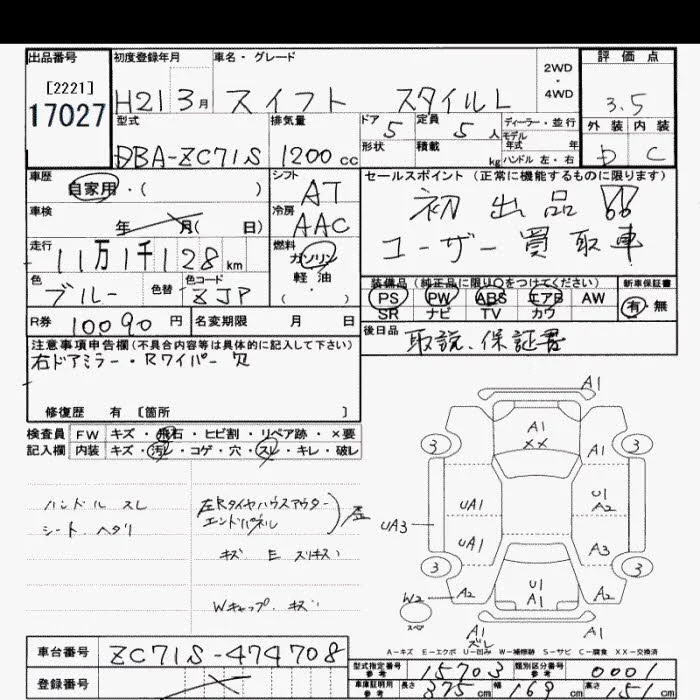 出品番号
[2221]
17027
初度登録年月
H21 3月
車名・グレード
スイフト スタイルL
2WD
・
4WD
評価点
3.5
外装 内装
D C
型式
DBA-ZC71S
排気量
1200cc
ドア
5
形状
定員
5人
積載
kg
ディーラー・並行
モデル
年式 年
ハンドル 左・右
車歴
自家用・( )
車検
年 月( 日)
走行
11万1千128km
色
ブルー
色替
色コード
ZJP
シフト
AT
冷房
AAC
燃料
ガソリン
軽油
( )
セールスポイント(正常に機能するものに限ります)
初出品!!
ユーザー買取車
装備品(純正品に限り〇をつけてください)
PS PW ABS エアB AW
SR ナビ TV カワ
新車保証書
有・無
R券 10090円
名変期限 月 日
後日品
取説、保証書
注意事項申告欄(不具合内容等は具体的に記入して下さい)
右ドアミラー・Rワイパー欠
修復歴 有[箇所 ]
検査員 FW キズ・飛石・ヒビ割・リペア跡・×要
記入欄 内装 キズ・汚レ・コゲ・穴・スレ・キレ・破レ
ハンドル スレ
シート ヘタリ
左Rタイヤハウスアウター
エンドパネル
歪
キズ E スリキズ
Wキャップ キズ
A1
A1
XX
3
3
A1
UA1
U1
A2
UA3
UA1
A3
3
3
W2
A2
U1
A1
A2
スペア
A1
ズレ
A1
A-キズ E-エクボ U-凹み W-補修跡 S-サビ C-腐食 XX-交換済
車台番号 ZC71S-474708
登録番号
型式指定番号
参考
15703
類別区分番号
参考
0001
車庫証明用
参考
長さ 375cm 幅 169cm 高さ 151cm